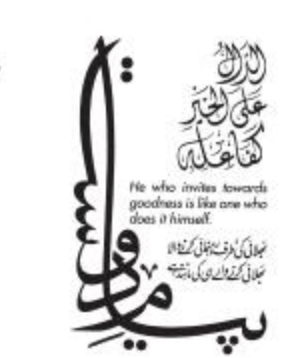 الدال
على الخير
كفاعله
He who invites towards
goodness is like one who
does it himself.
بھلائی کی طرف رہنمائی کرنے والا
بھلائی کرنے والے ہی کی مانند ہے